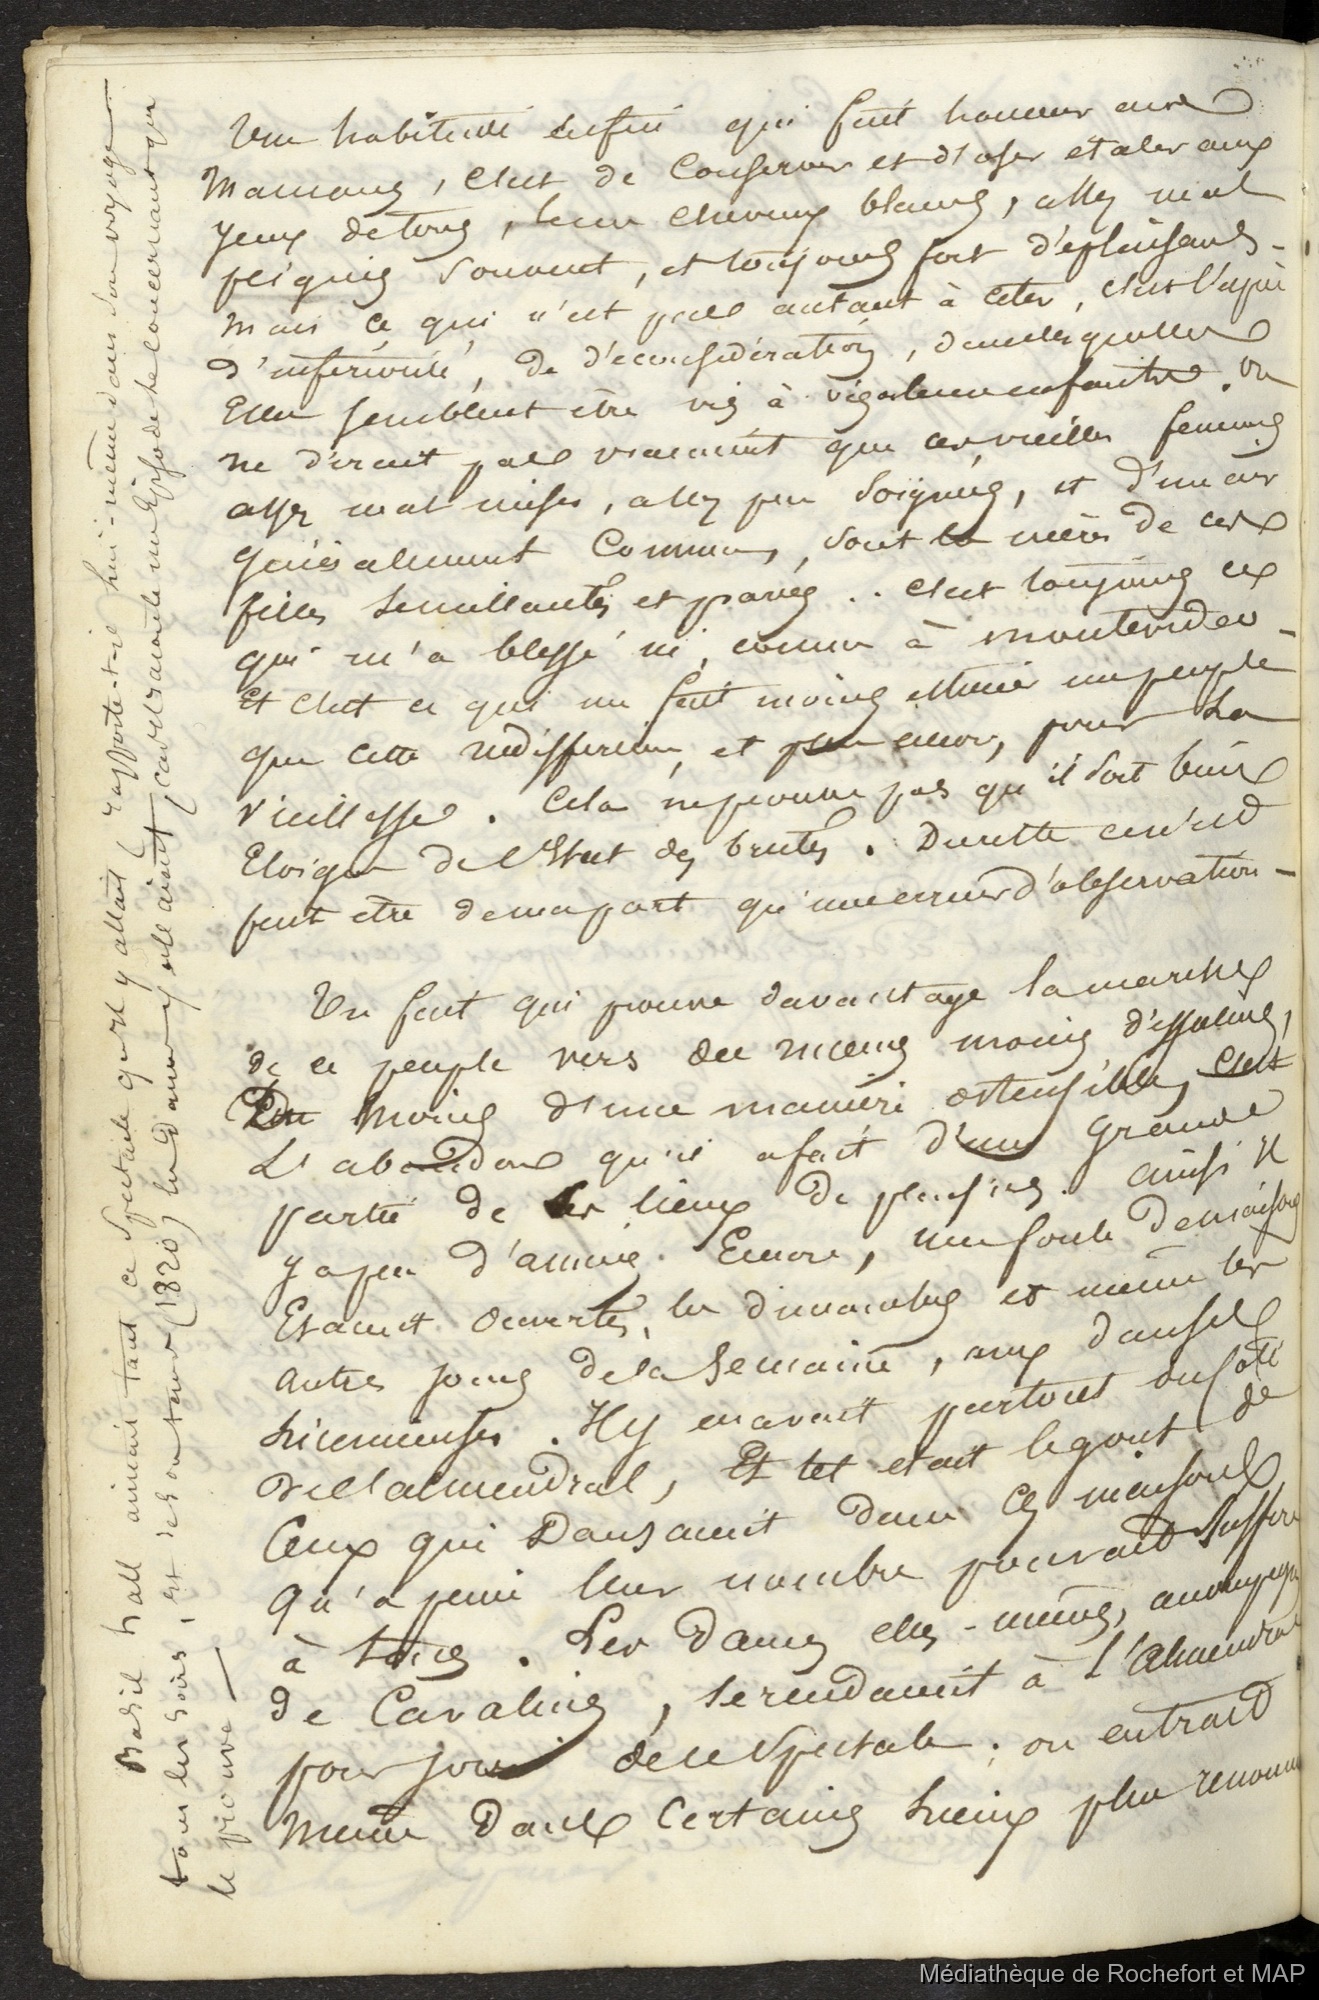 Une habitude enfin qui fait honneur aux
Mamans, c'est de conserver et d'oser etaler aux
yeux de tous, leurs cheveux blancs, assez mal
peignés souvent, et toujours fort déplaisants -
Mais ce qui n'est pas autant à citer, c'est l'espèce
d'infériorité, de déconsidération, dans lesquelles
Elles semblent être vis à vis de leurs enfants. on
ne dirait pas vraiment que ces vieilles femmes
assez mal mises, assez peu soignées, et d'un air
généralement commun, sont les mères de ces
filles semillantes et parées .. c'est toujours ce
qui m'a blessé ici, comme à Montevideo -
Et c'est ce qui me fait moins estimer un peuple
que cette indifférence, et plus encore, pour la
vieillesse. Cela ne prouve pas qu'il soit bien
Eloigné de l'Etat des brutes. Du reste ce n'est
peut etre de ma part qu'une erreur d'observation -
Un fait qui prouve davantage la marche
de ce peuple vers des mœurs moins dissolues,
Du moins d'une manière ostensible, c'est
L'abandon qu'il a fait d'une grande
partie de ses lieux de plaisirs. ainsi il
y a peu d'années. Encore, une foule de maisons
Etaient ouvertes, les dimanches et même les
autres jours de la semaine, aux danses
licencieuses. Il y en avait partout du coté
de l'almendral, Et tel etait le gout de
Ceux qui dansaient dans ces maisons
qu'à peine leur nombre pouvait suffire
à tous. Les dames elles-mêmes, accompagnées
de Cavaliers, se rendaient à l'almendral
pour jouir de ce spectacle; on entrait
même dans certains lieux plus renommés
Basil hall aimait tant ce spectacle qu'il y allait (rapporte-t-il lui-même dans son voyage -
tous les soirs, et de son tems (1820) les dames y allaient, car il raconte un Episode les concernant qui
le prouve -
Médiathèque de Rochefort et MAP